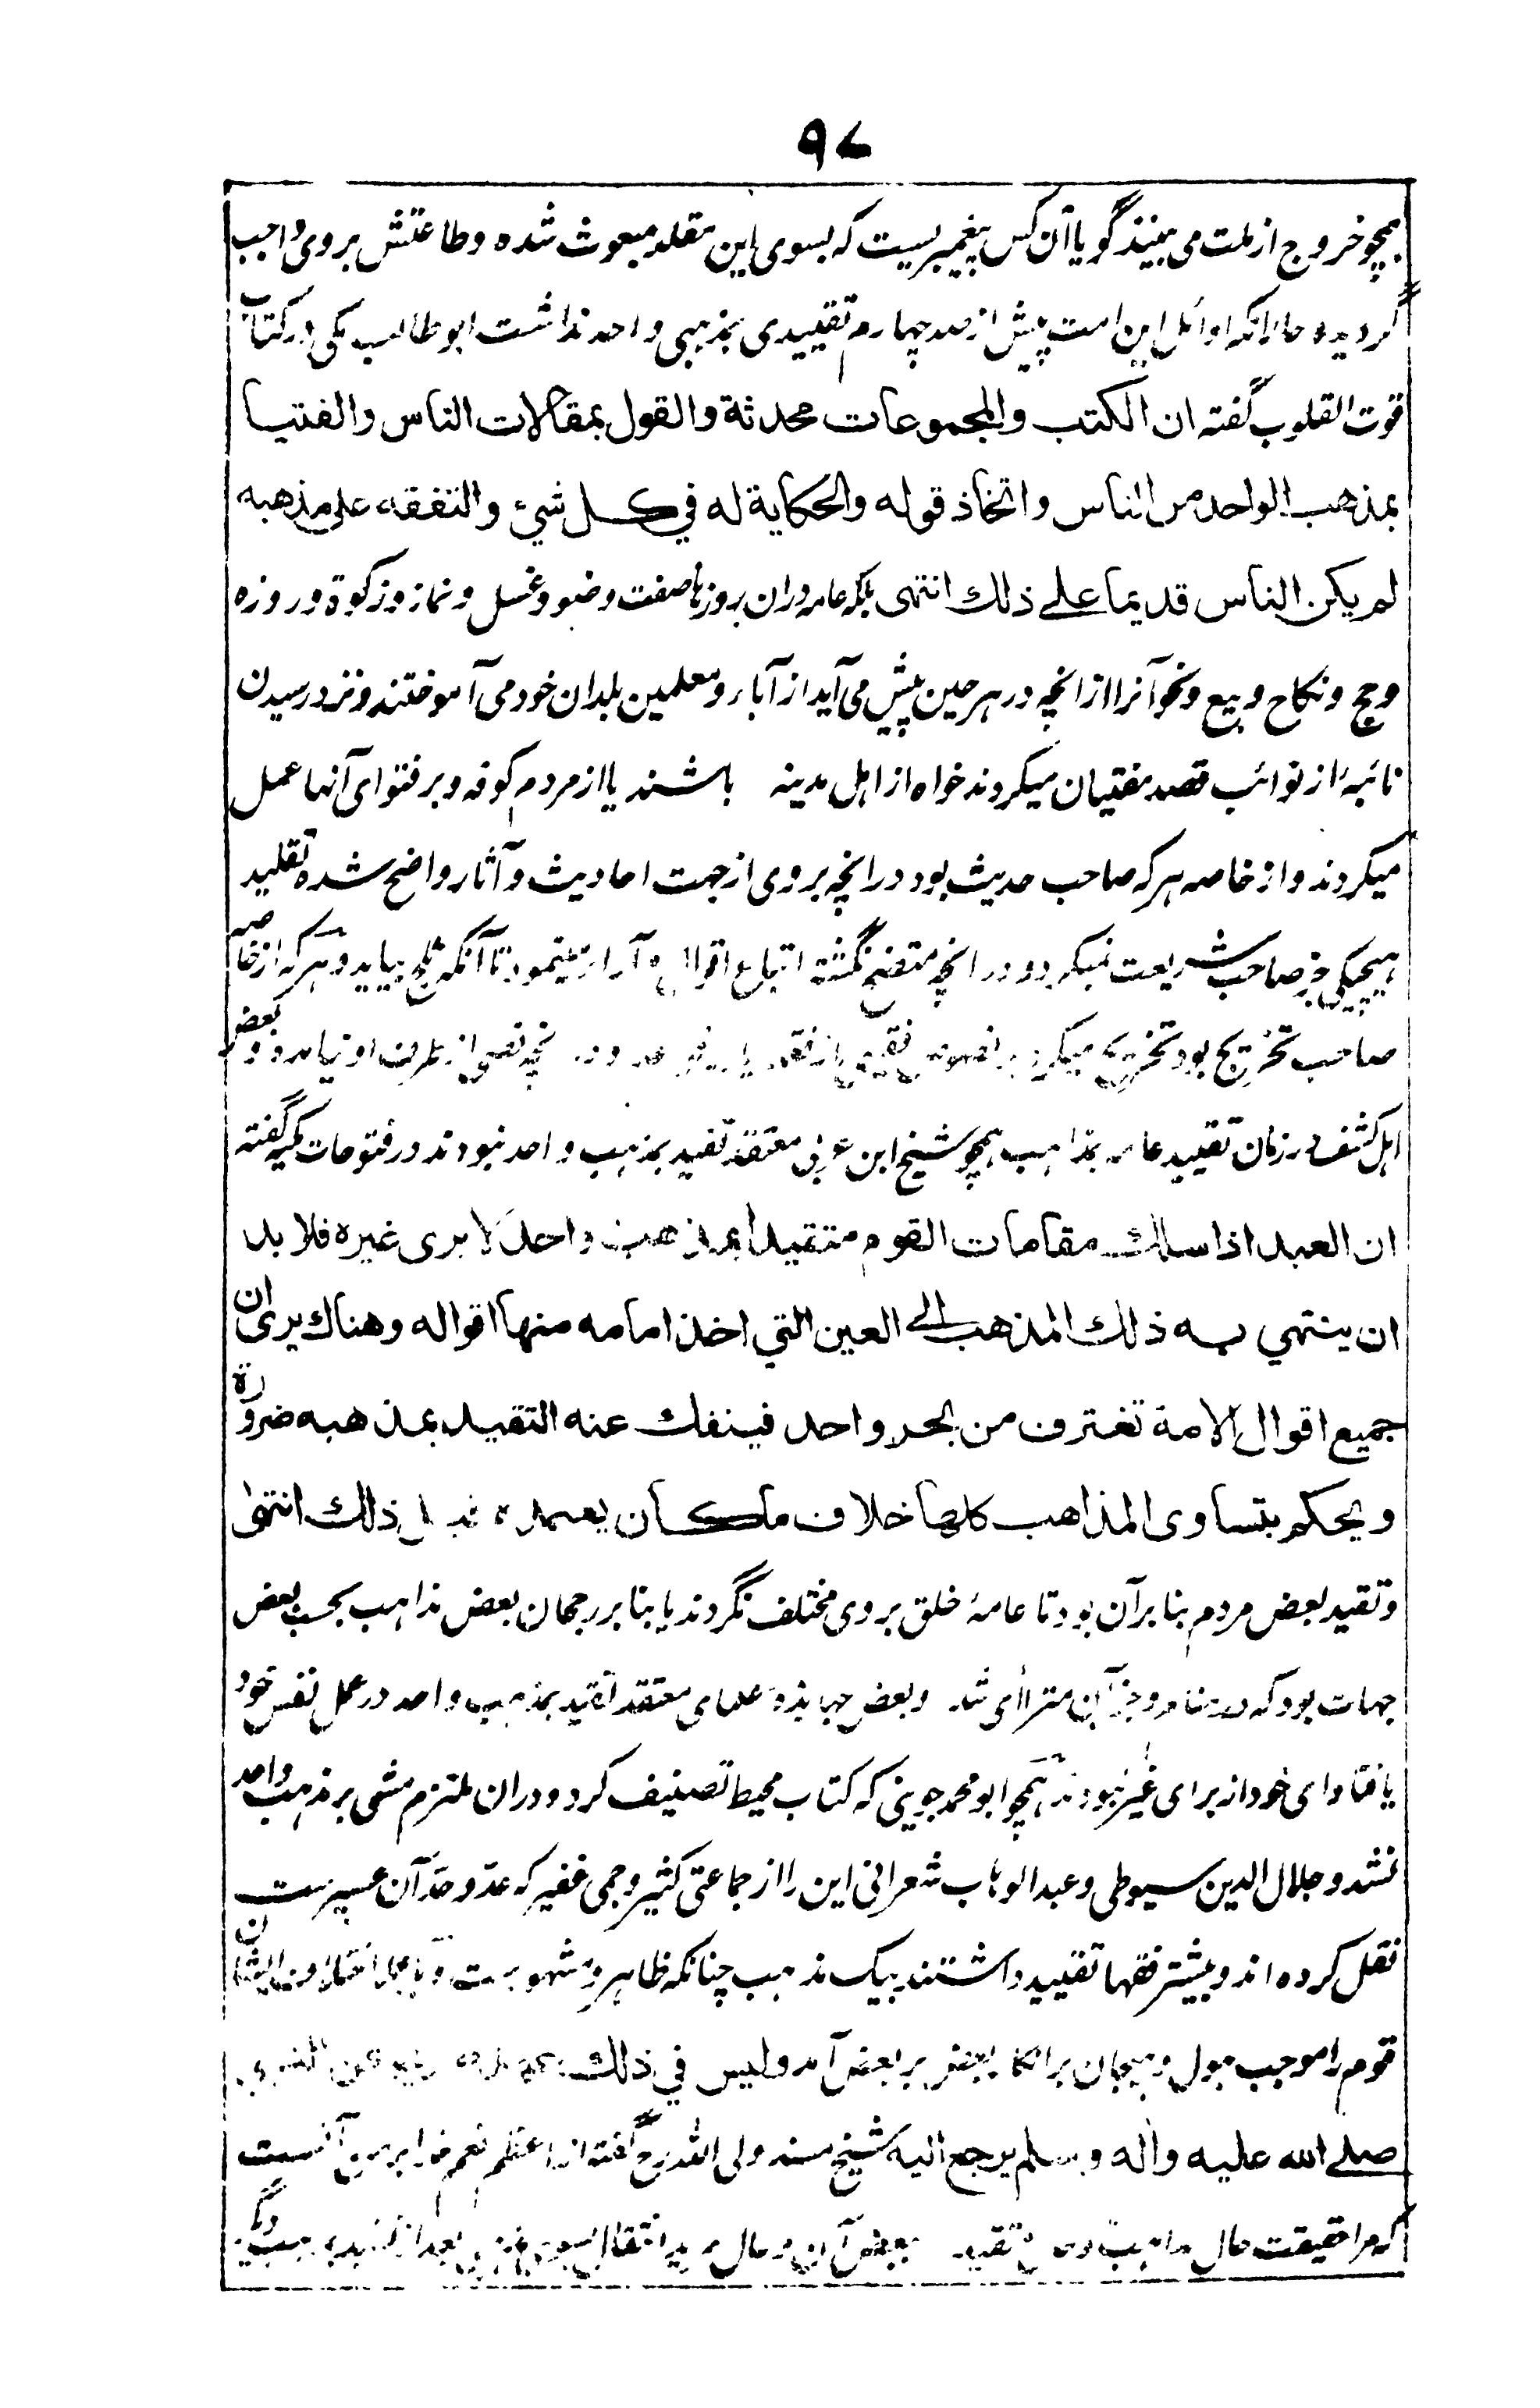 ۹۷
ہمچو خروج از ملت می بینند گویا آن کس پیغمبریست که بسوی این مقلد مبعوث شده و طاعتش بروی واجب
گردیده حالانکه اوائل این امت پیش از صد چهارم تقییدی بمذهبی واحد نداشت ابو طالب مکی در کتاب
قوت القلوب گفته ان الکتب والمجموعات محدثة والقول بمقالات الناس والفتیا
بمذهب الواحد من الناس واتخاذ قوله والحکایة له فی کل شیء والتفقه علی مذهبه
لم یکن الناس قدیما علی ذلك انتهی بلکه عامه دران روزها صفت وضو و غسل و نماز و زکوة و روزه
و حج و نکاح و بیع و نحو آنرا از انچه در هر حین پیش می آید از آباء و معلمین بلدان خود می آموختند و نزد رسیدن
نائبۂ از نوائب قصد مفتیان میکردند خواه از اهل مدینه باشند یا از مردم کوفه و بر فتوای آنها عمل
میکردند و از خاصه هر که صاحب حدیث بود در انچه بروی از جهت احادیث و آثار واضح شده تقلید
هیچیکی جز صاحب شریعت نمیکرد و در انچه متضح نگشته اتباع اقوال آرا تا آنکه ثلج بیاید و هر که از خاصه
صاحب تخریج بود تخریج میکرد نصی از طرف او نیامده و بعض
اهل کشف در زمان تقیید عامه بمذاهب همچو شیخ ابن عربی معتقد تقید بمذهب واحد نبودند در فتوحات مکیه گفته
ان العبد اذا سلك مقامات القوم متقیدا بمذهب واحد لا یری غیره فلا بد
ان ینتهی به ذلك المذهب الی العین التی اخذ امامه منها اقواله وهناك یری ان
جمیع اقوال الامة تغترف من بحر واحد فینفك عنه التقید بمذهبه ضرورة
ویحکم بتساوی المذاهب کلها خلاف ما کان یعتقده قبل ذلك انتهی
و تقید بعض مردم بنا بر آن بود تا عامۂ خلق بروی مختلف نگردند یا بنا بر رجحان بعض مذاهب بحسب بعض
جهات بود که در منام و جز آن مترأای شد و بعض جهابذه علمای معتقد تقید بمذهب واحد در عمل نفس خود
یا فتاوای خود از برای غیر نبودند همچو ابو محمد جوینی که کتاب محیط تصنیف کرد و دران ملتزم مشی بر مذهب واحد
نشد و جلال الدین سیوطی و عبد الوهاب شعرانی این را از جماعتی کثیر و جمی غفیر که عدّ و حدّ آن عسیرست
نقل کرده اند و بیشتر فقها تقیید داشتند بیک مذهب چنانکه ظاهر و مشهورست و بالجمله اختلاف درین شان
قوم را موجب صول و هیجان بر انکار بعض بر بعض آمد ولیس فی ذلك
صلی الله علیه واله وسلم یرجع الیه شیخ مسند ولی الله رح گفته از اعظم نعم خدا بر من آنست
که مرا حقیقت حال مذاهب تقید بعض آن در حال مرید انتقال بعد از تقید بمذهب دیگر